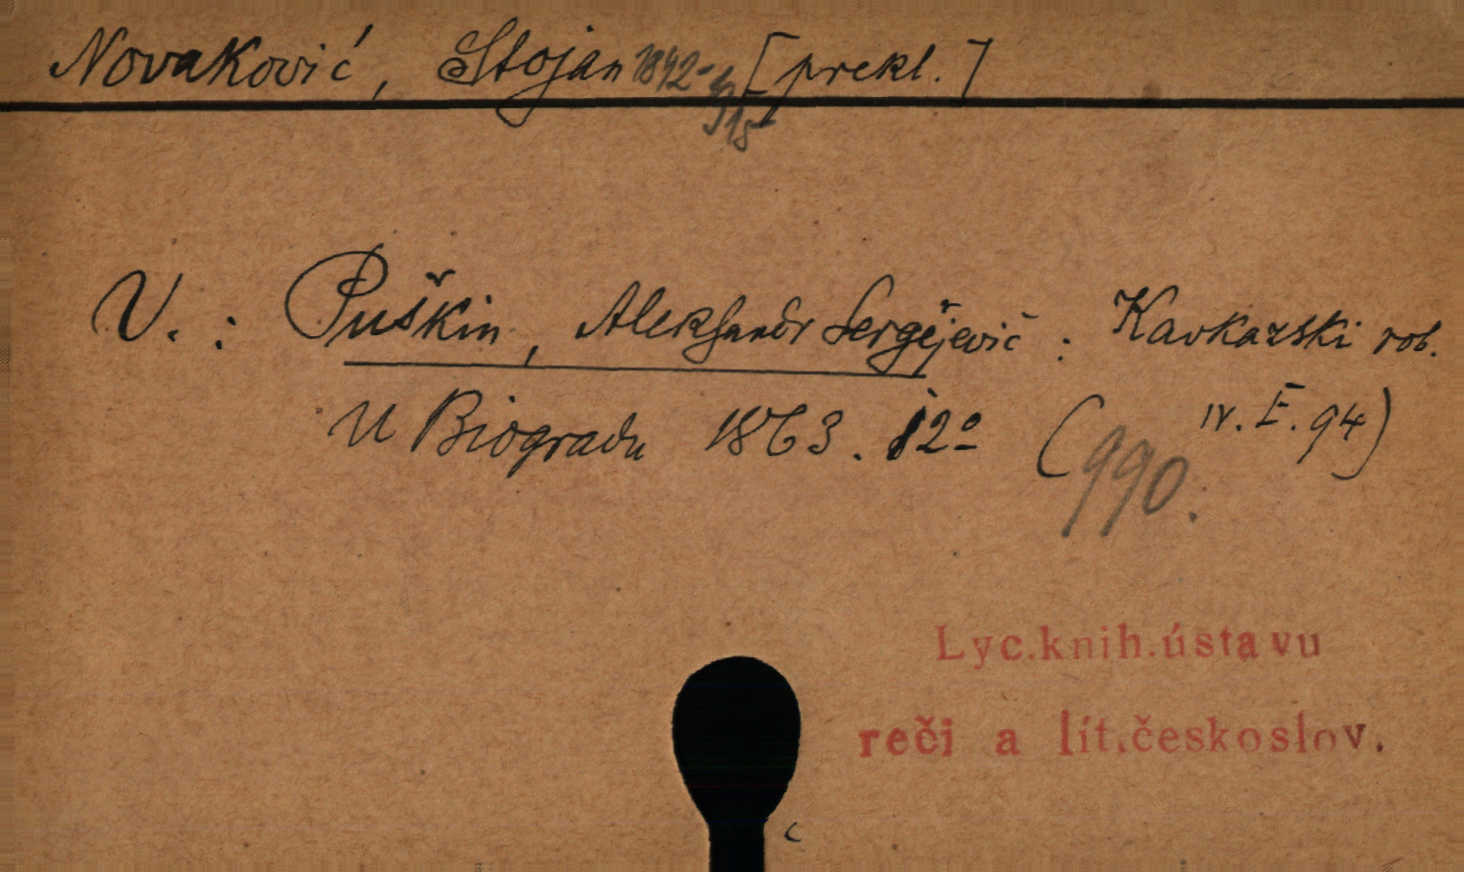 Novaković, Stojan 1842-915 [prekl.]
V.: Puškin, Aleksandr Sergějevič: Kavkazski rob.
U Biogradu 1863. 12º (IV.E.94)
990.
Lyc.knih.ústavu
reči a lit.českoslov.